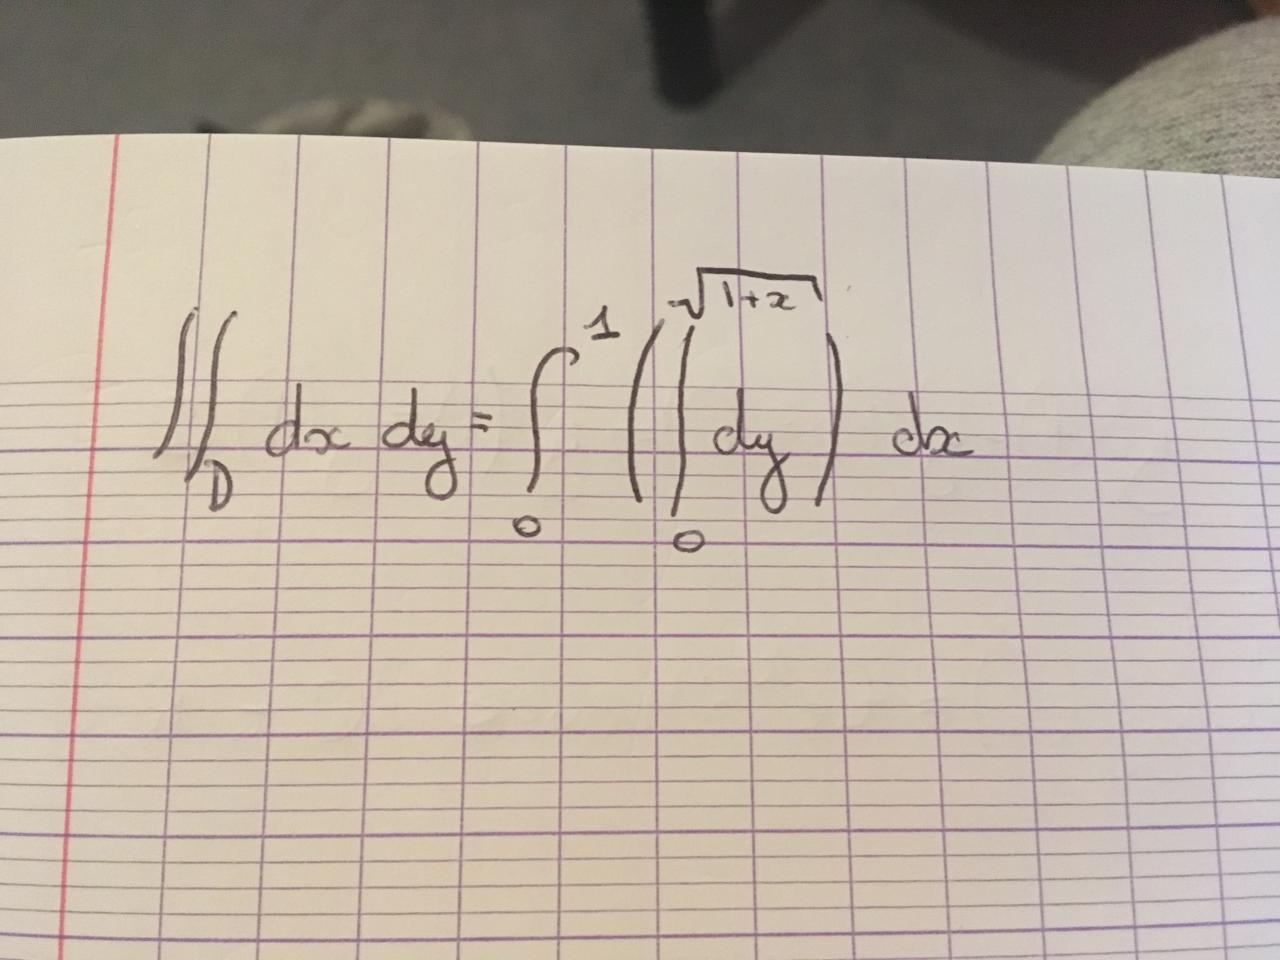 ∬_D dx dy = ∫_0^1 ( ∫_0^{√(1+x)} dy ) dx